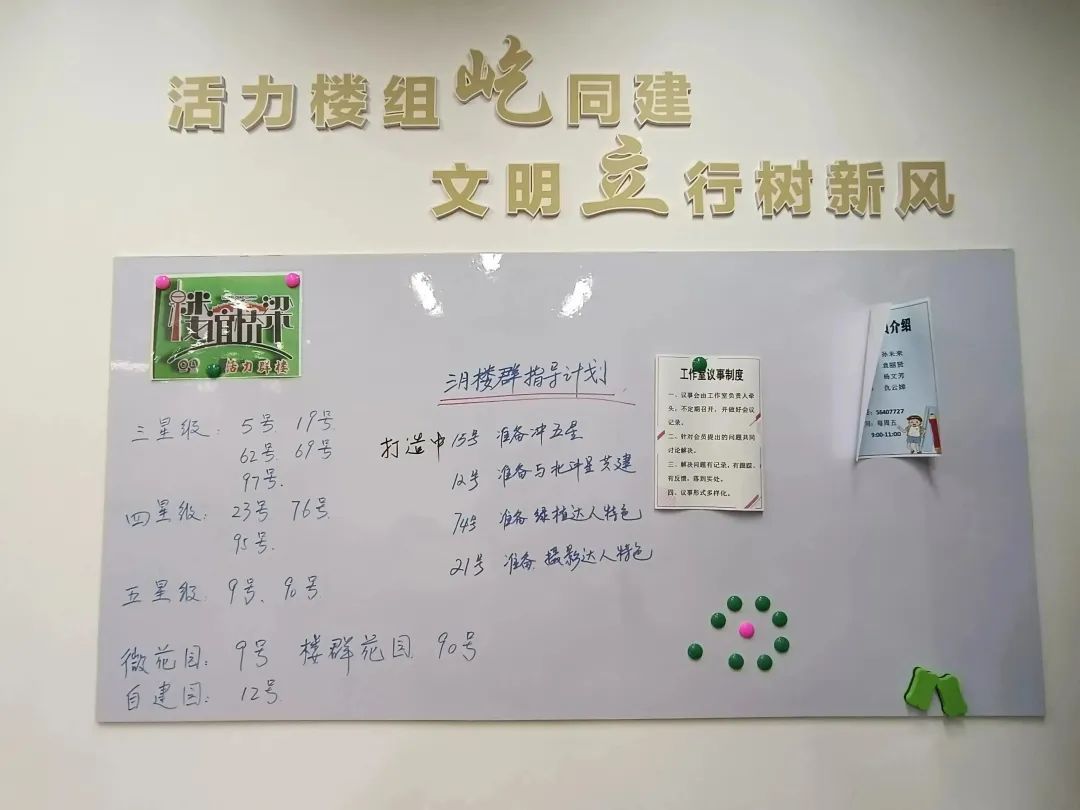 活力楼组屹同建
文明立行树新风
活力群楼
三月楼群指导计划
三星级: 5号. 19号
62号. 69号
97号.
四星级: 23号 76号.
95号.
五星级: 9号、90号
微花园: 9号 楼群花园 90号
自建园: 12号.
打造中 15号 准备冲五星
12号 准备与北斗星共建
74号 准备绿植达人特色
21号 准备.摄影达人特色
工作室议事制度
一、议事会由工作室负责人牵
头,不定期召开,并做好会议
记录。
二、针对会员提出的问题共同
讨论解决。
三、解决问题有记录、有跟踪、
有反馈,落到实处。
四、议事形式多样化。
介绍
孙未来
袁丽贤
杨文芳
仇云娣
56407727
每周五
9:00-11:00